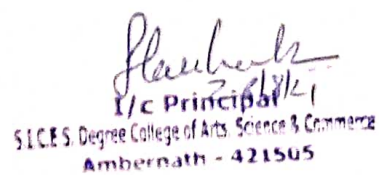 I/c Principal
S.I.C.E.S. Degree College of Arts, Science & Commerce
Ambernath - 421505